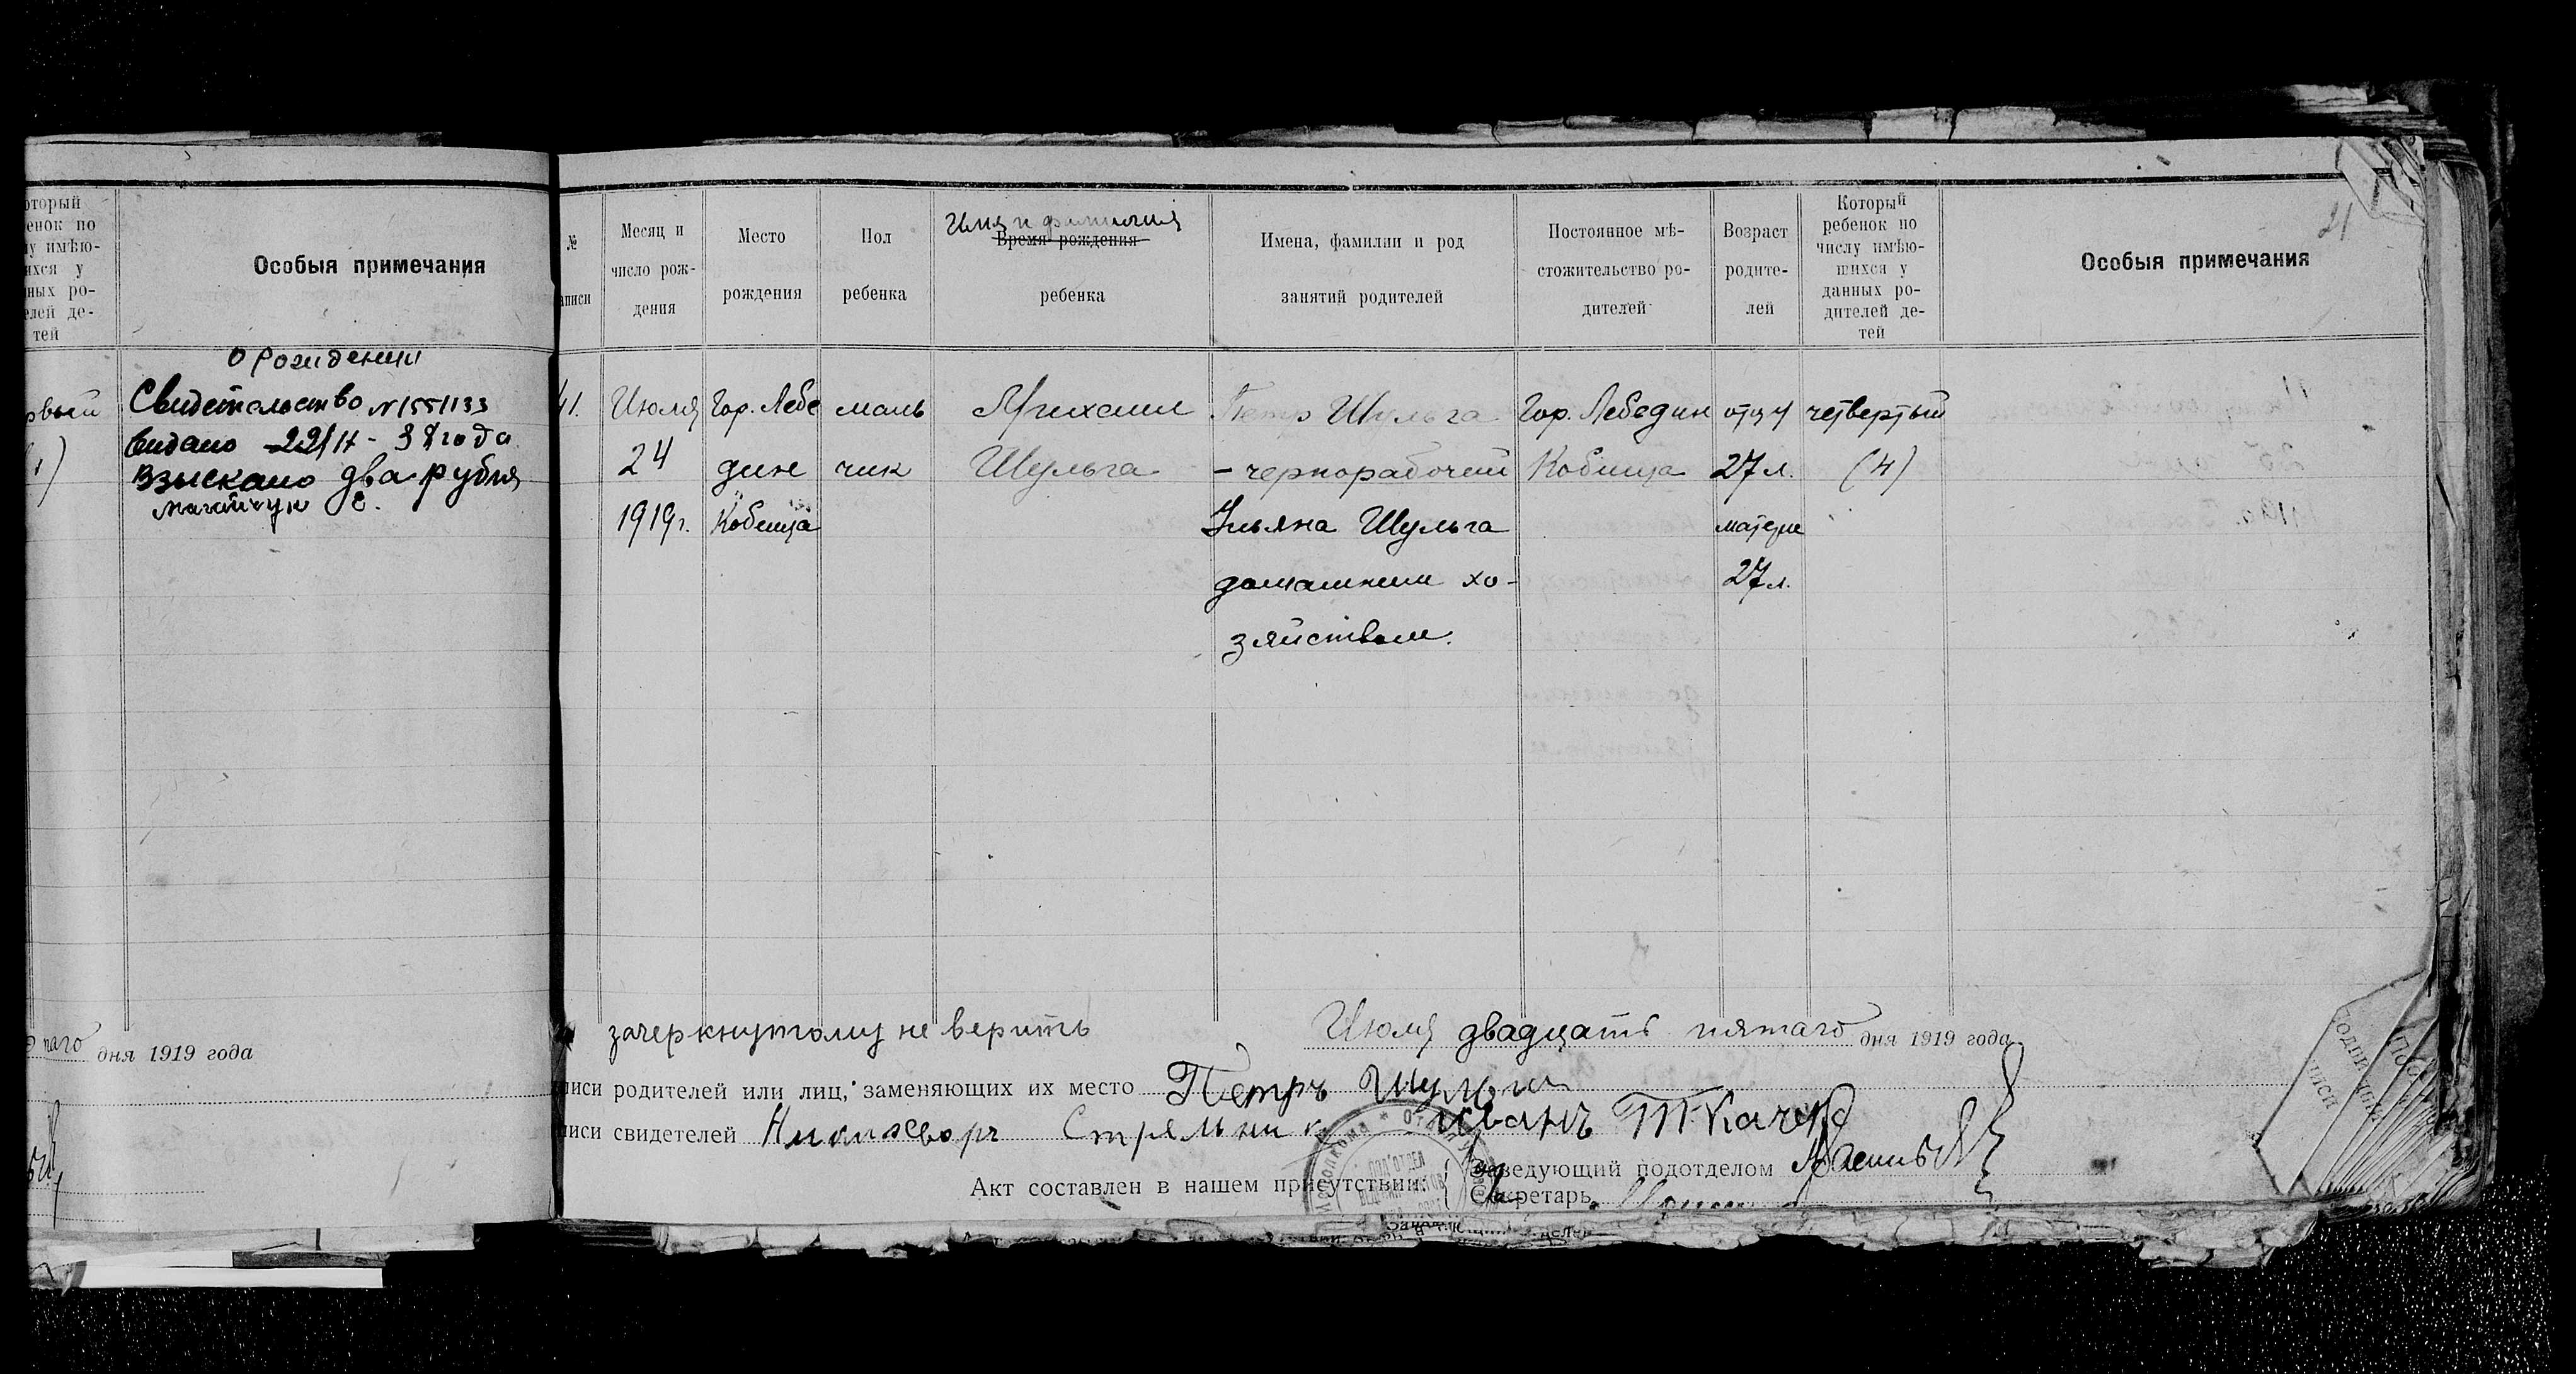 оторый
енок по
у имѣю-
ихся у
ных ро-
елей де-
тей
Особыя примечания
о Рождении
Свидетельство N1551133
видано 22/II - 38 года
Взыскано два рубля
рвый
таго дня 1919 года
№
аписи
Месяц и
число рож-
дения
Место
рождения
Пол
ребенка
Имя и фамилия
Время рождения
ребенка
Имена, фамилии и род
занятий родителей
Постоянное мѣ-
стожительство ро-
дителей
Возраст
родите-
лей
Который
ребенок по
числу имѣю-
шихся у
данных ро-
дителей де-
тей
Особыя примечания
21
41.
Июля
24
1919 г.
Гор. Лебе
дин
Кобища
маль
чик
Михаил
Шульга
Петр Шульга
- чернорабочий
Ульяна Шульга
домашним хо-
зяйством.
Гор. Лебедин
Кобища
отцу
27 л.
матери
27 л.
четвертый
(4)
зачеркнутому не верить
Июля двадцать пятаго дня 1919 года
писи родителей или лиц, заменяющих их место Петръ Шульга
писи свидетелей Никифоръ Стрельник Иванъ Ткач
Акт составлен в нашем присутствии:
Заведующий подотделом
Секретарь